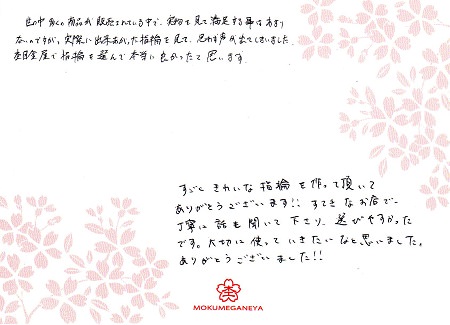 世の中多くの商品が販売されている中で、実物を見て満足する事はあまり
ないのですが、実際に出来あがった指輪を見て、思わず声が出てしまいました。
杢目金屋で指輪を選んで本当に良かったて思います
すごく きれいな 指輪 を 作って 頂いて
ありがとうございます!! すてき な お店で
丁寧に 話も 聞いて 下さり、選びやすかった
です。大切に 使って いきたい なと思いました。
ありがとう ございました!!
MOKUMEGANEYA